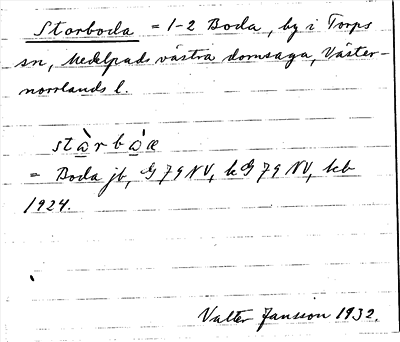 Storboda = 1-2 Boda, by i Torps
sn, Medelpads västra domsaga, Väster-
norrlands l.
stὰrbὰæ
= Boda jb, G 79 NV, kG 79 NV, kb
1924.
Valter Jansson 1932.